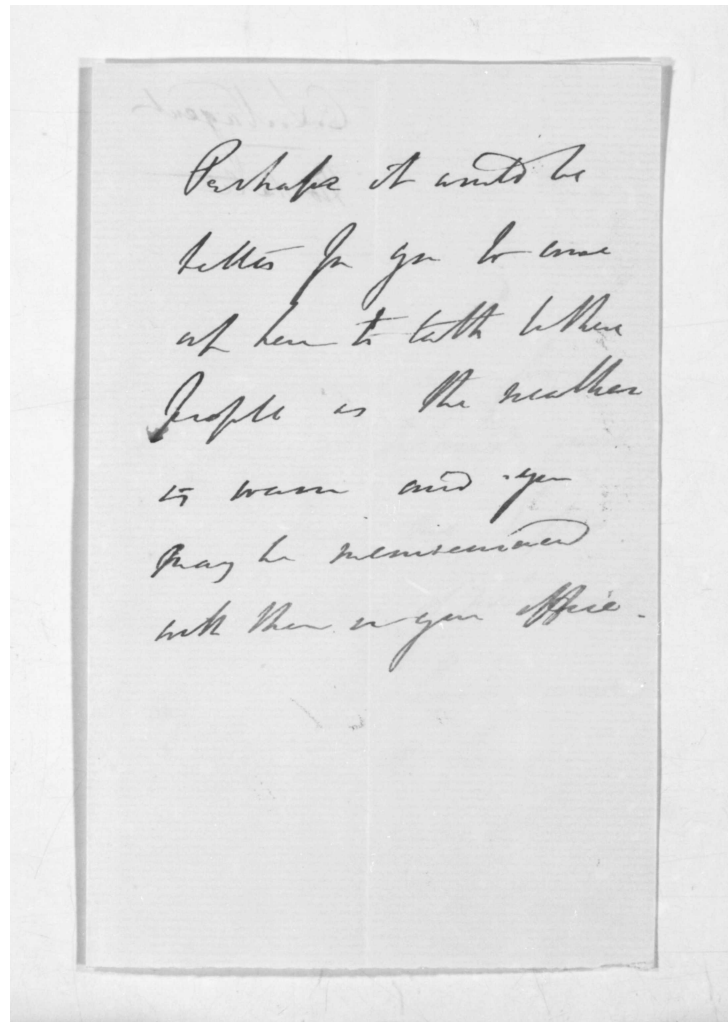 Perhaps it would be
better for you to come
out here to talk to these
people as the weather
is warm and you
may be inconvenienced
with them in your office.